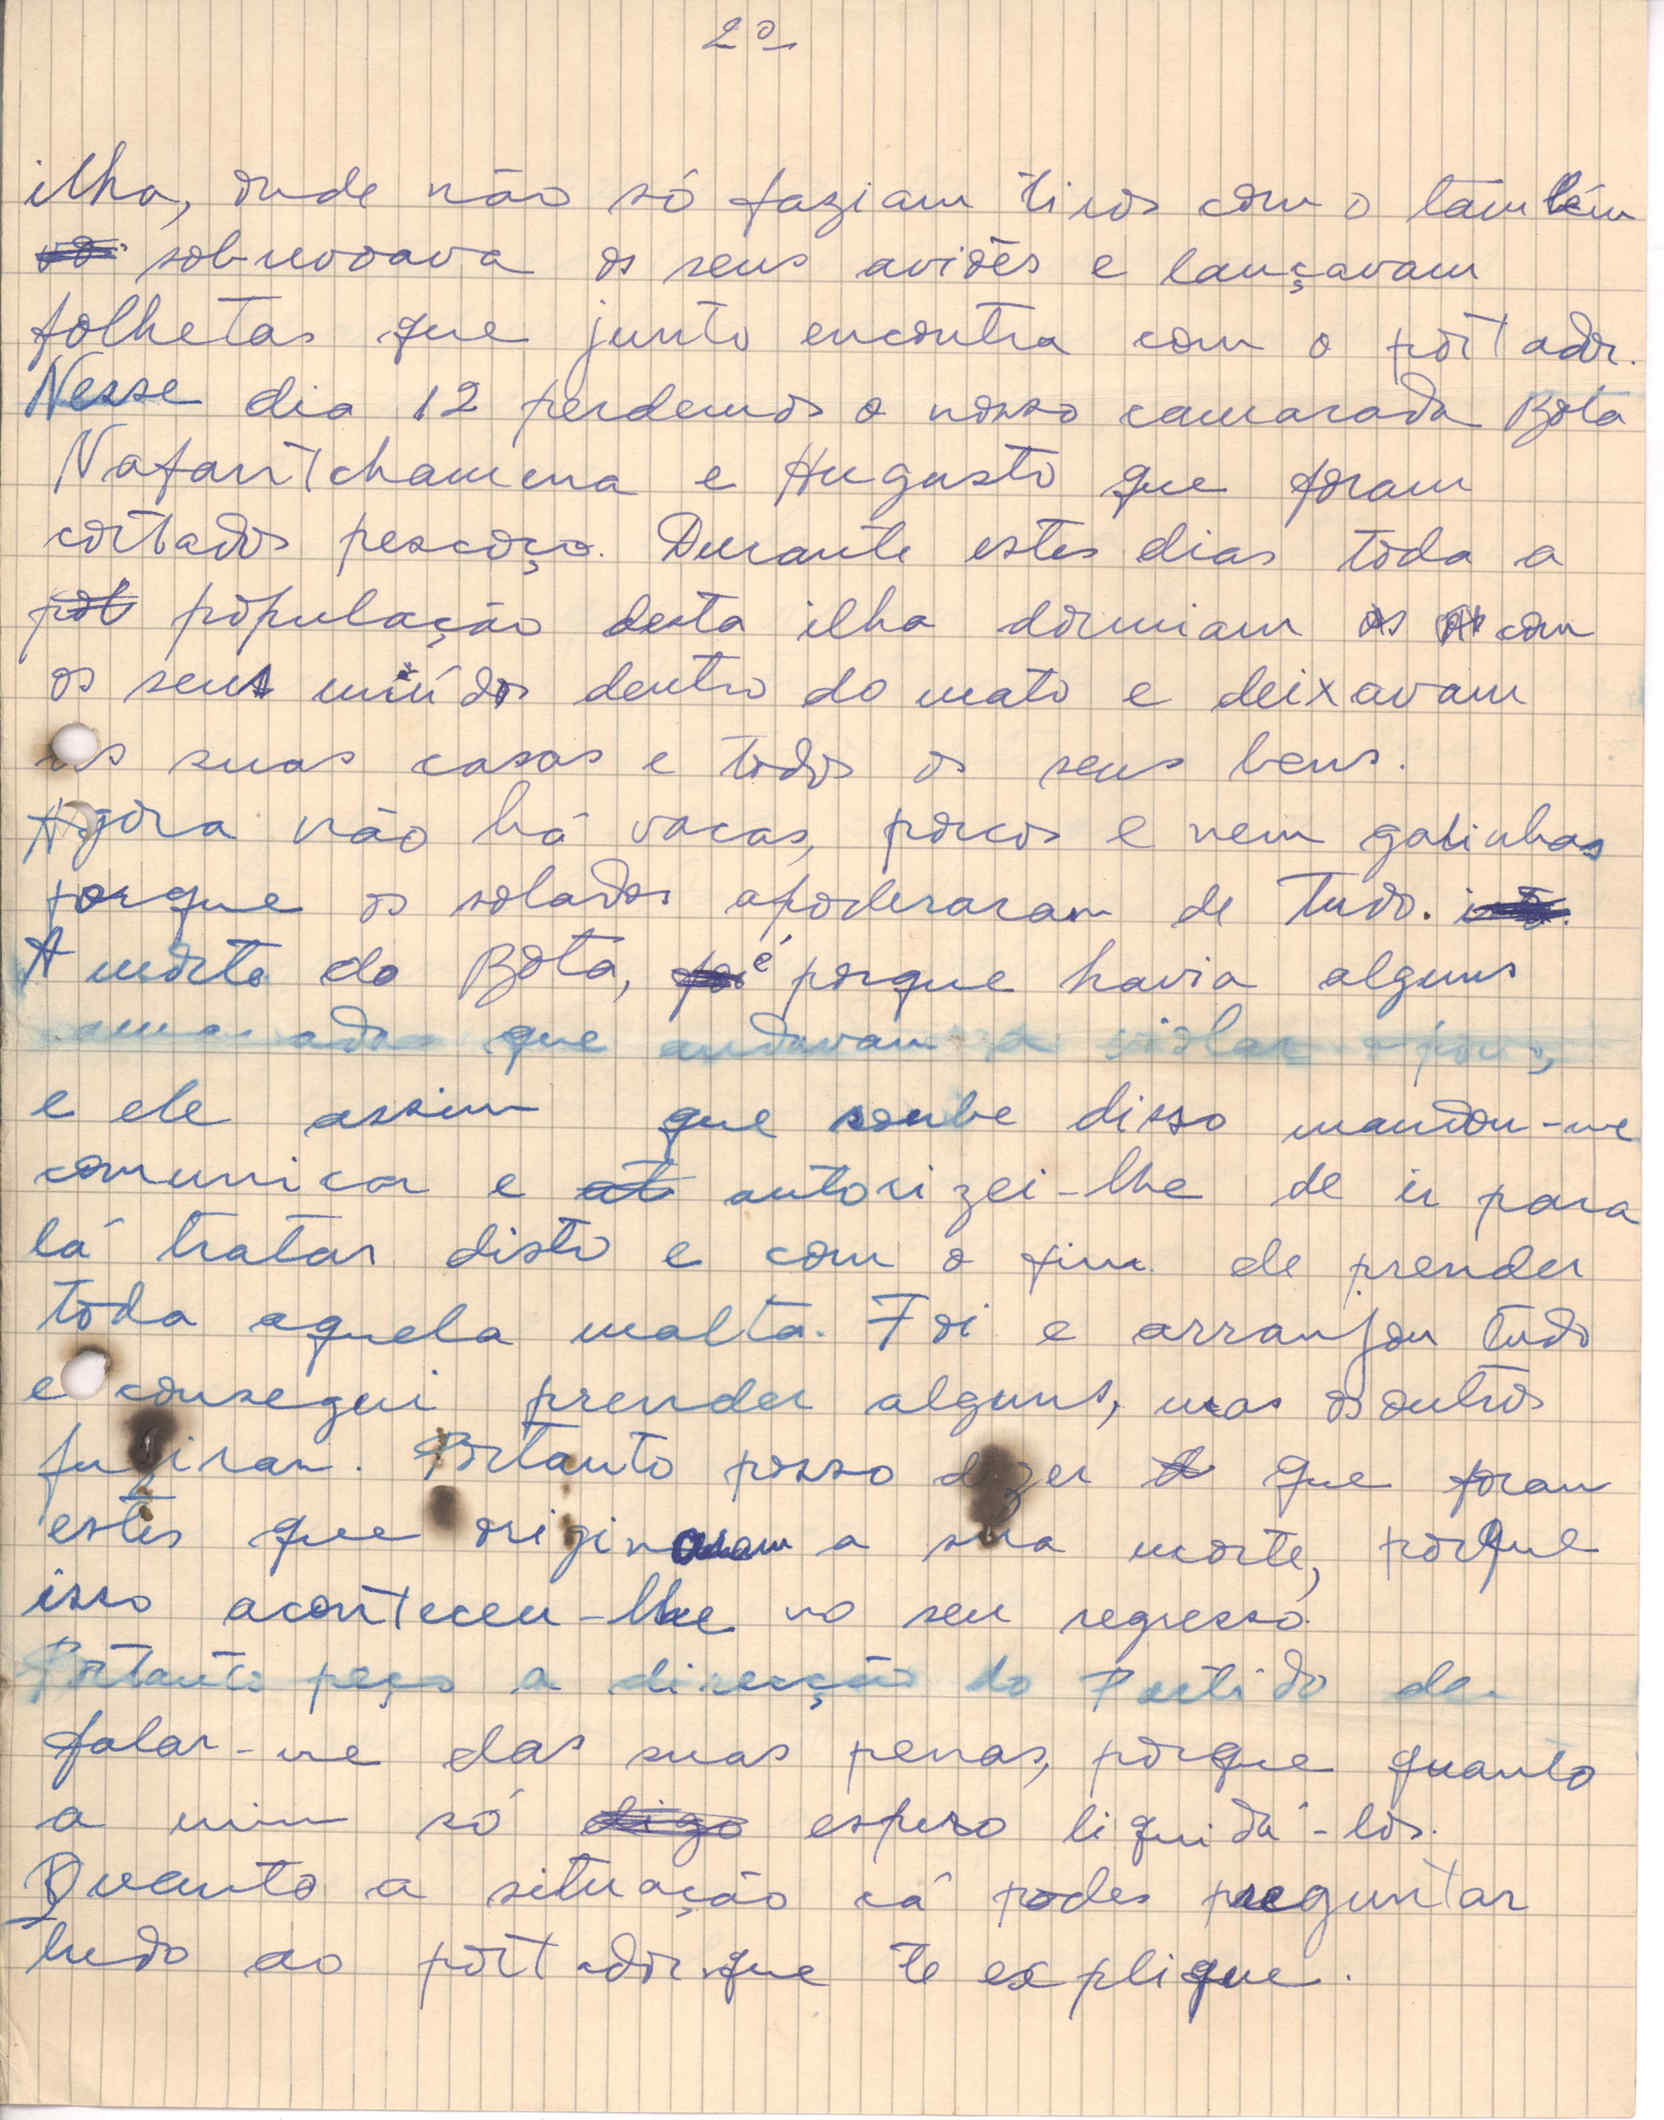 2º
ilha, onde não só faziam tiros com o também
sobrevoava os seus aviões e lançavam
folhetas que junto encontra com o portador.
Nesse dia 12 perdemos o nosso camarada Bota
Nafantchamena e Hugusto que foram
cortados pescoço. Durante estes dias toda a
pot população desta ilha dormiam os com
os seus miúdos dentro do mato e deixavam
as suas casas e todos os seus bens.
Agora não há vacas, porcos e nem galinhas
porque os solados apoderaram de tudo.
A morte do Bota, foi é porque havia alguns
camaradas que andavam a violar o povo,
e ele assim que soube disso mandou-me
comunicar e at autorizei-lhe de ir para
lá tratar disto e com o fim de prender
toda aquela malta. Foi e arranjou tudo
e consegui prender alguns, mas os outros
fugiram. Portanto posso dizer que foram
estes que originaram a sua morte, porque
isso aconteceu-lhe no seu regresso.
Portanto peço a direcção do Partido de
falar-me das suas penas, porque quanto
a mim só digo espero liquidá-los.
Quanto a situação cá podes preguntar
tudo ao portador que te explique.